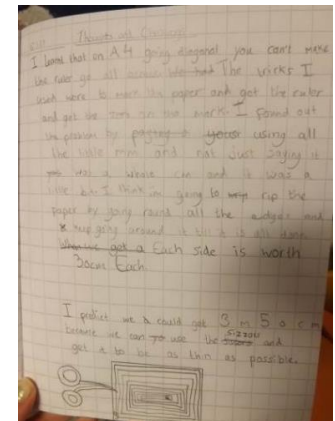 Thoughts and
I learnt that on A4 going diagonal you can't make
the ruler go all The tricks I
used were to mark the paper and got the ruler
and put the on the mark. I found out
the problem by using all
the little mm and not just saying it
was a whole cm and it was a
like bit I think im going to rip the
paper by going round all the edges and
keep going around it till it is all done
Each side is worth
30cm Each.
I predict we could get 3 m 5 0 c m
because we can use the sizzors and
get it to be as thin as possible.